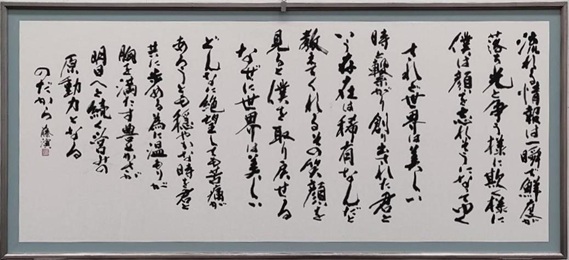 流れる情報は一瞬で鮮度が
落ち光と争う様に欺く様に
僕は顔を忘れそうになって
されど世界は美しい
時と繋がり創り出された君と
いう存在は稀有なんだと
教えてくれるその笑顔を
見ると僕を取り戻せる
なぜに世界は美しい
どんなに絶望しても苦痛が
あろうとも穏やかな時を君と
共に歩める為に温もりが
胸を満たす豊かさが
明日へと続く営みの
原動力となる
のだから